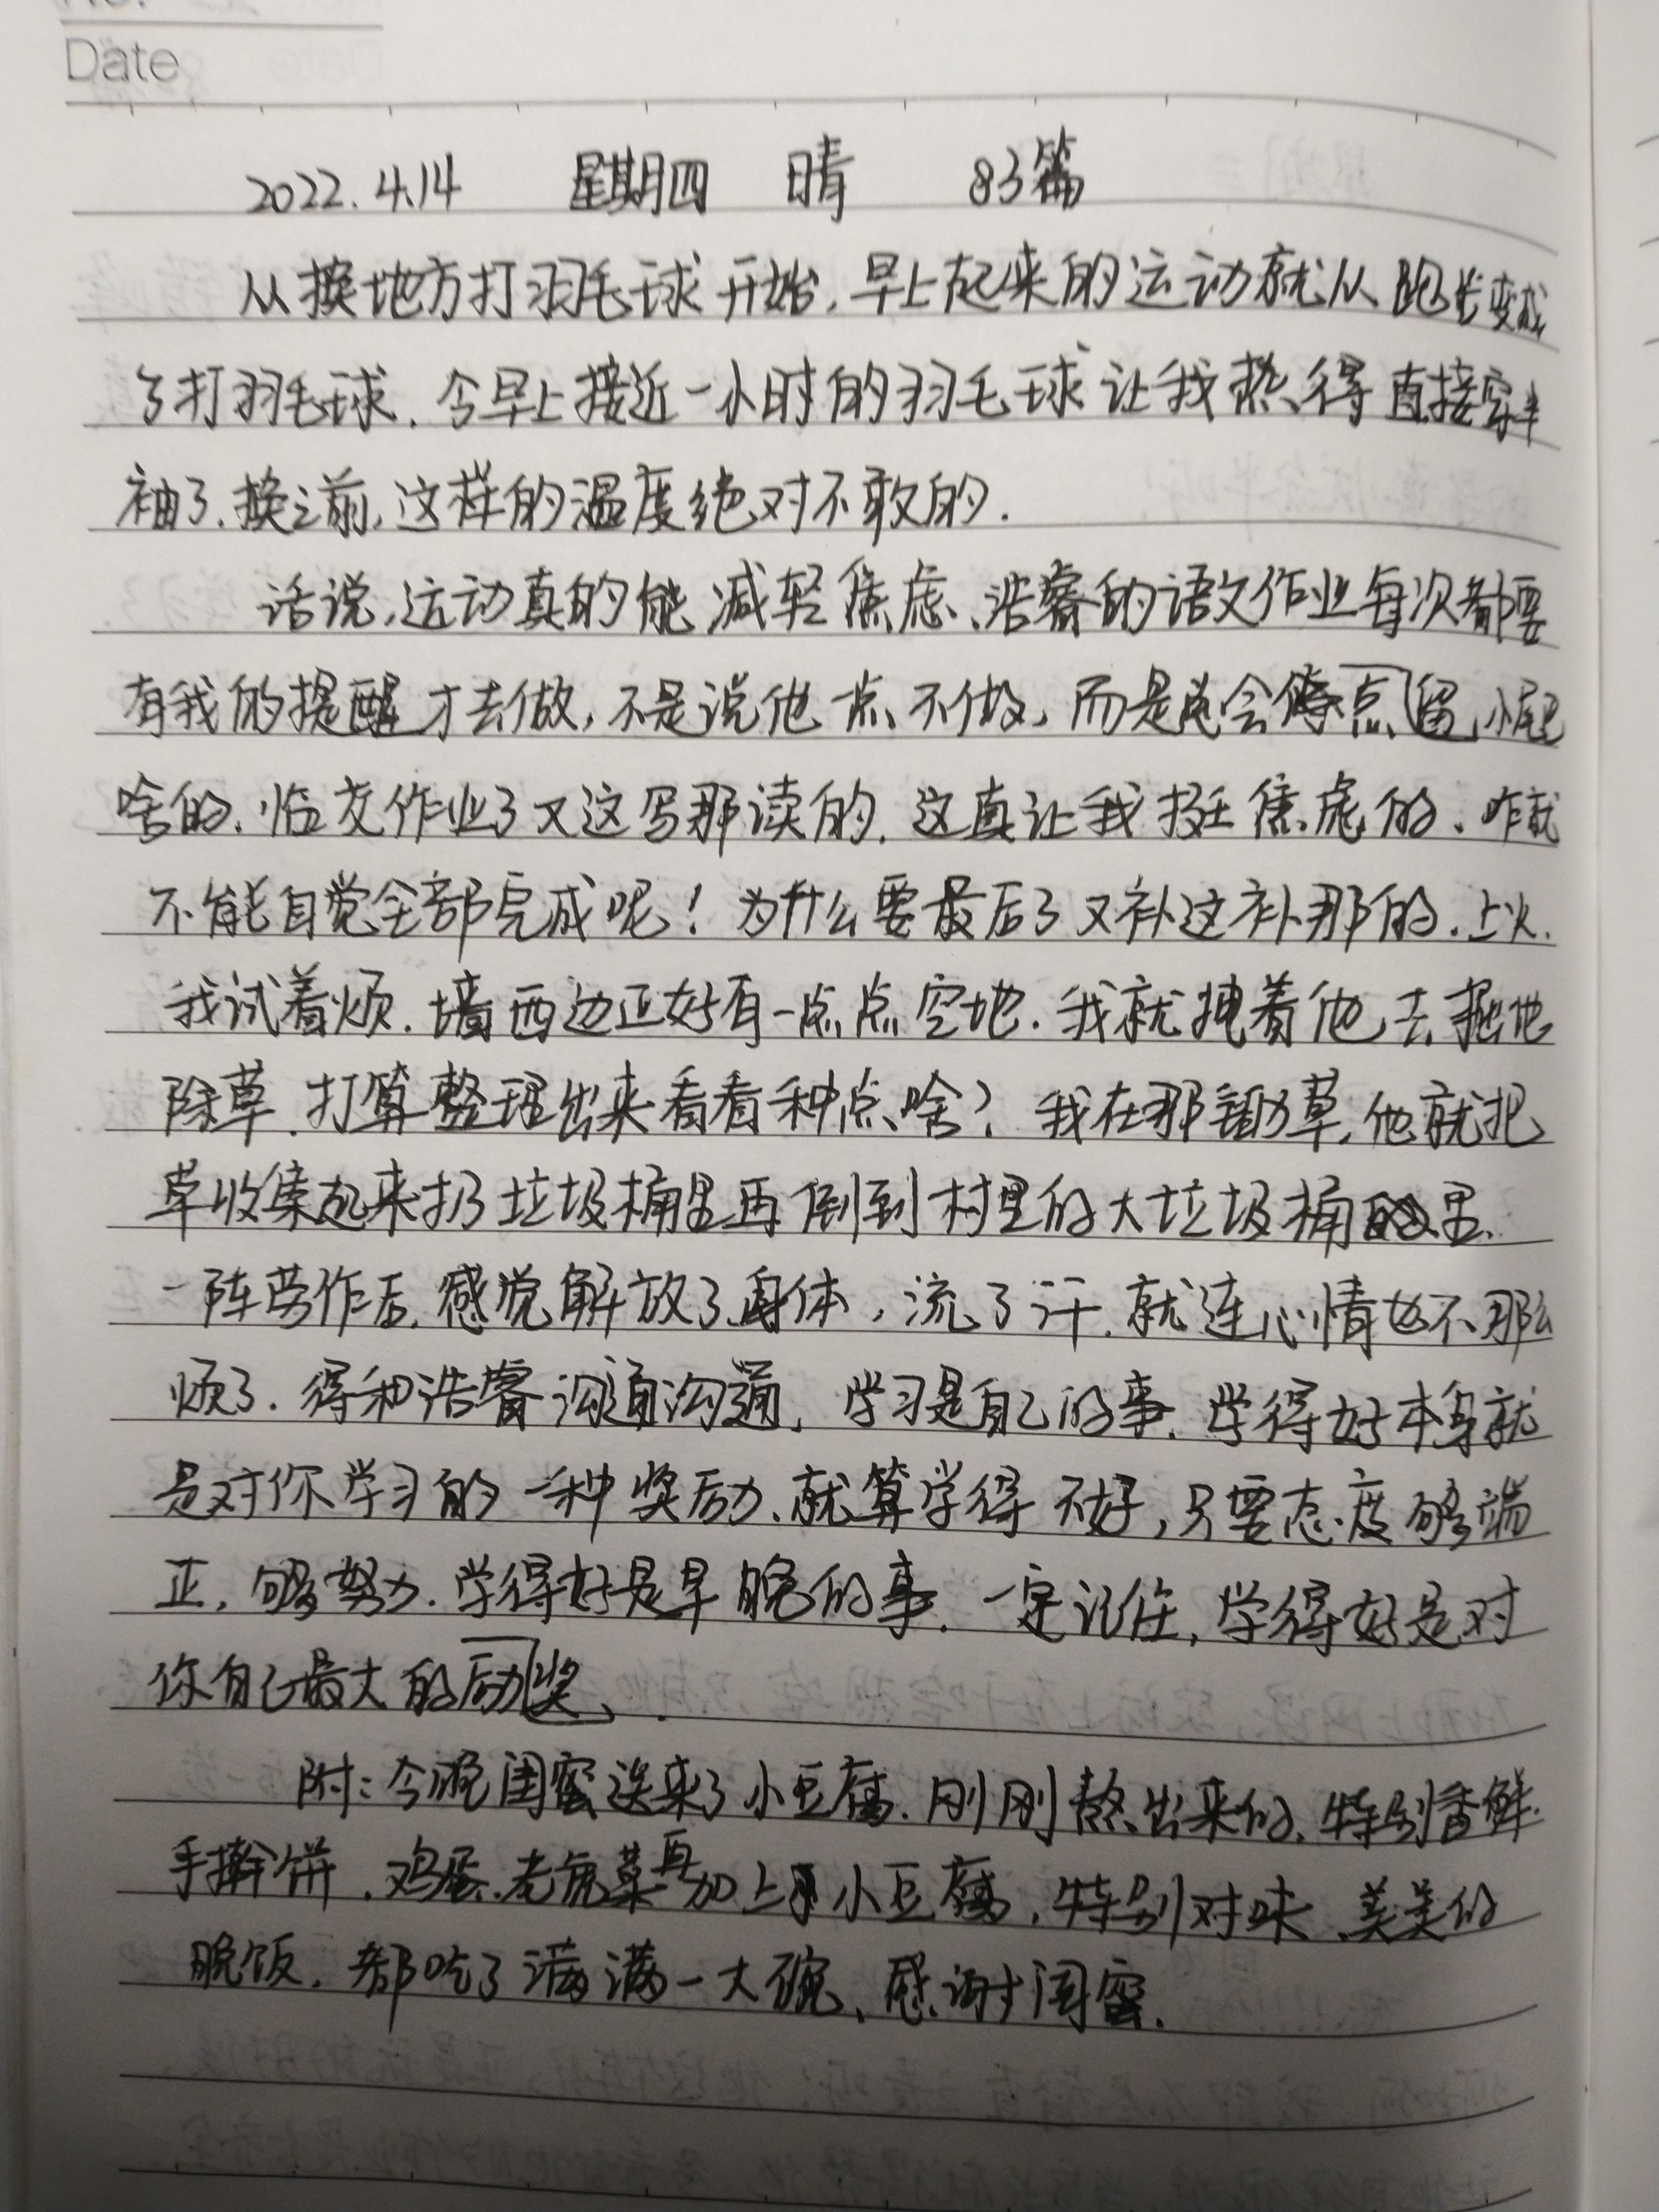 Date
2022.4.14 星期四 晴 83篇
从换地方打羽毛球开始,早上起来的运动就从跑步变成
了打羽毛球.今早上接近一小时的羽毛球让我热得直接穿半
袖了.换之前,这样的温度绝对不敢的.
话说,运动真的能减轻焦虑、浩睿的语文作业每次都要
有我的提醒才去做,不是说他一点不做,而是总会点留小尾巴
啥的.临交作业了又这写那读的.这真让我挺焦虑的.咋就
不能自觉全部完成呢!为什么要最后了又补这补那的.上火.
我试着烦.墙西边正好有一点点空地.我就拽着他去掘地
除草.打算整理出来看看种点啥?我在那锄草,他就把
草收集起来扔垃圾桶里再倒到村里的大垃圾桶里.
一阵劳作后,感觉解放了身体,流了汗.就连心情也不那么
烦了.得和浩睿沟通沟通,学习是自己的事.学得好本身就
是对你学习的一种奖励、就算学得不好,只要态度够端
正,够努力.学得好是早晚的事.一定记住,学得好是对
你自己最大的励奖、.
附:今晚闺蜜送来了小豆腐.刚刚熬出来的、特别香鲜.
手擀饼.鸡蛋.老虎菜再加上小豆腐,特别对味、美美的
晚饭.都吃了满满一大碗、感谢闺蜜.